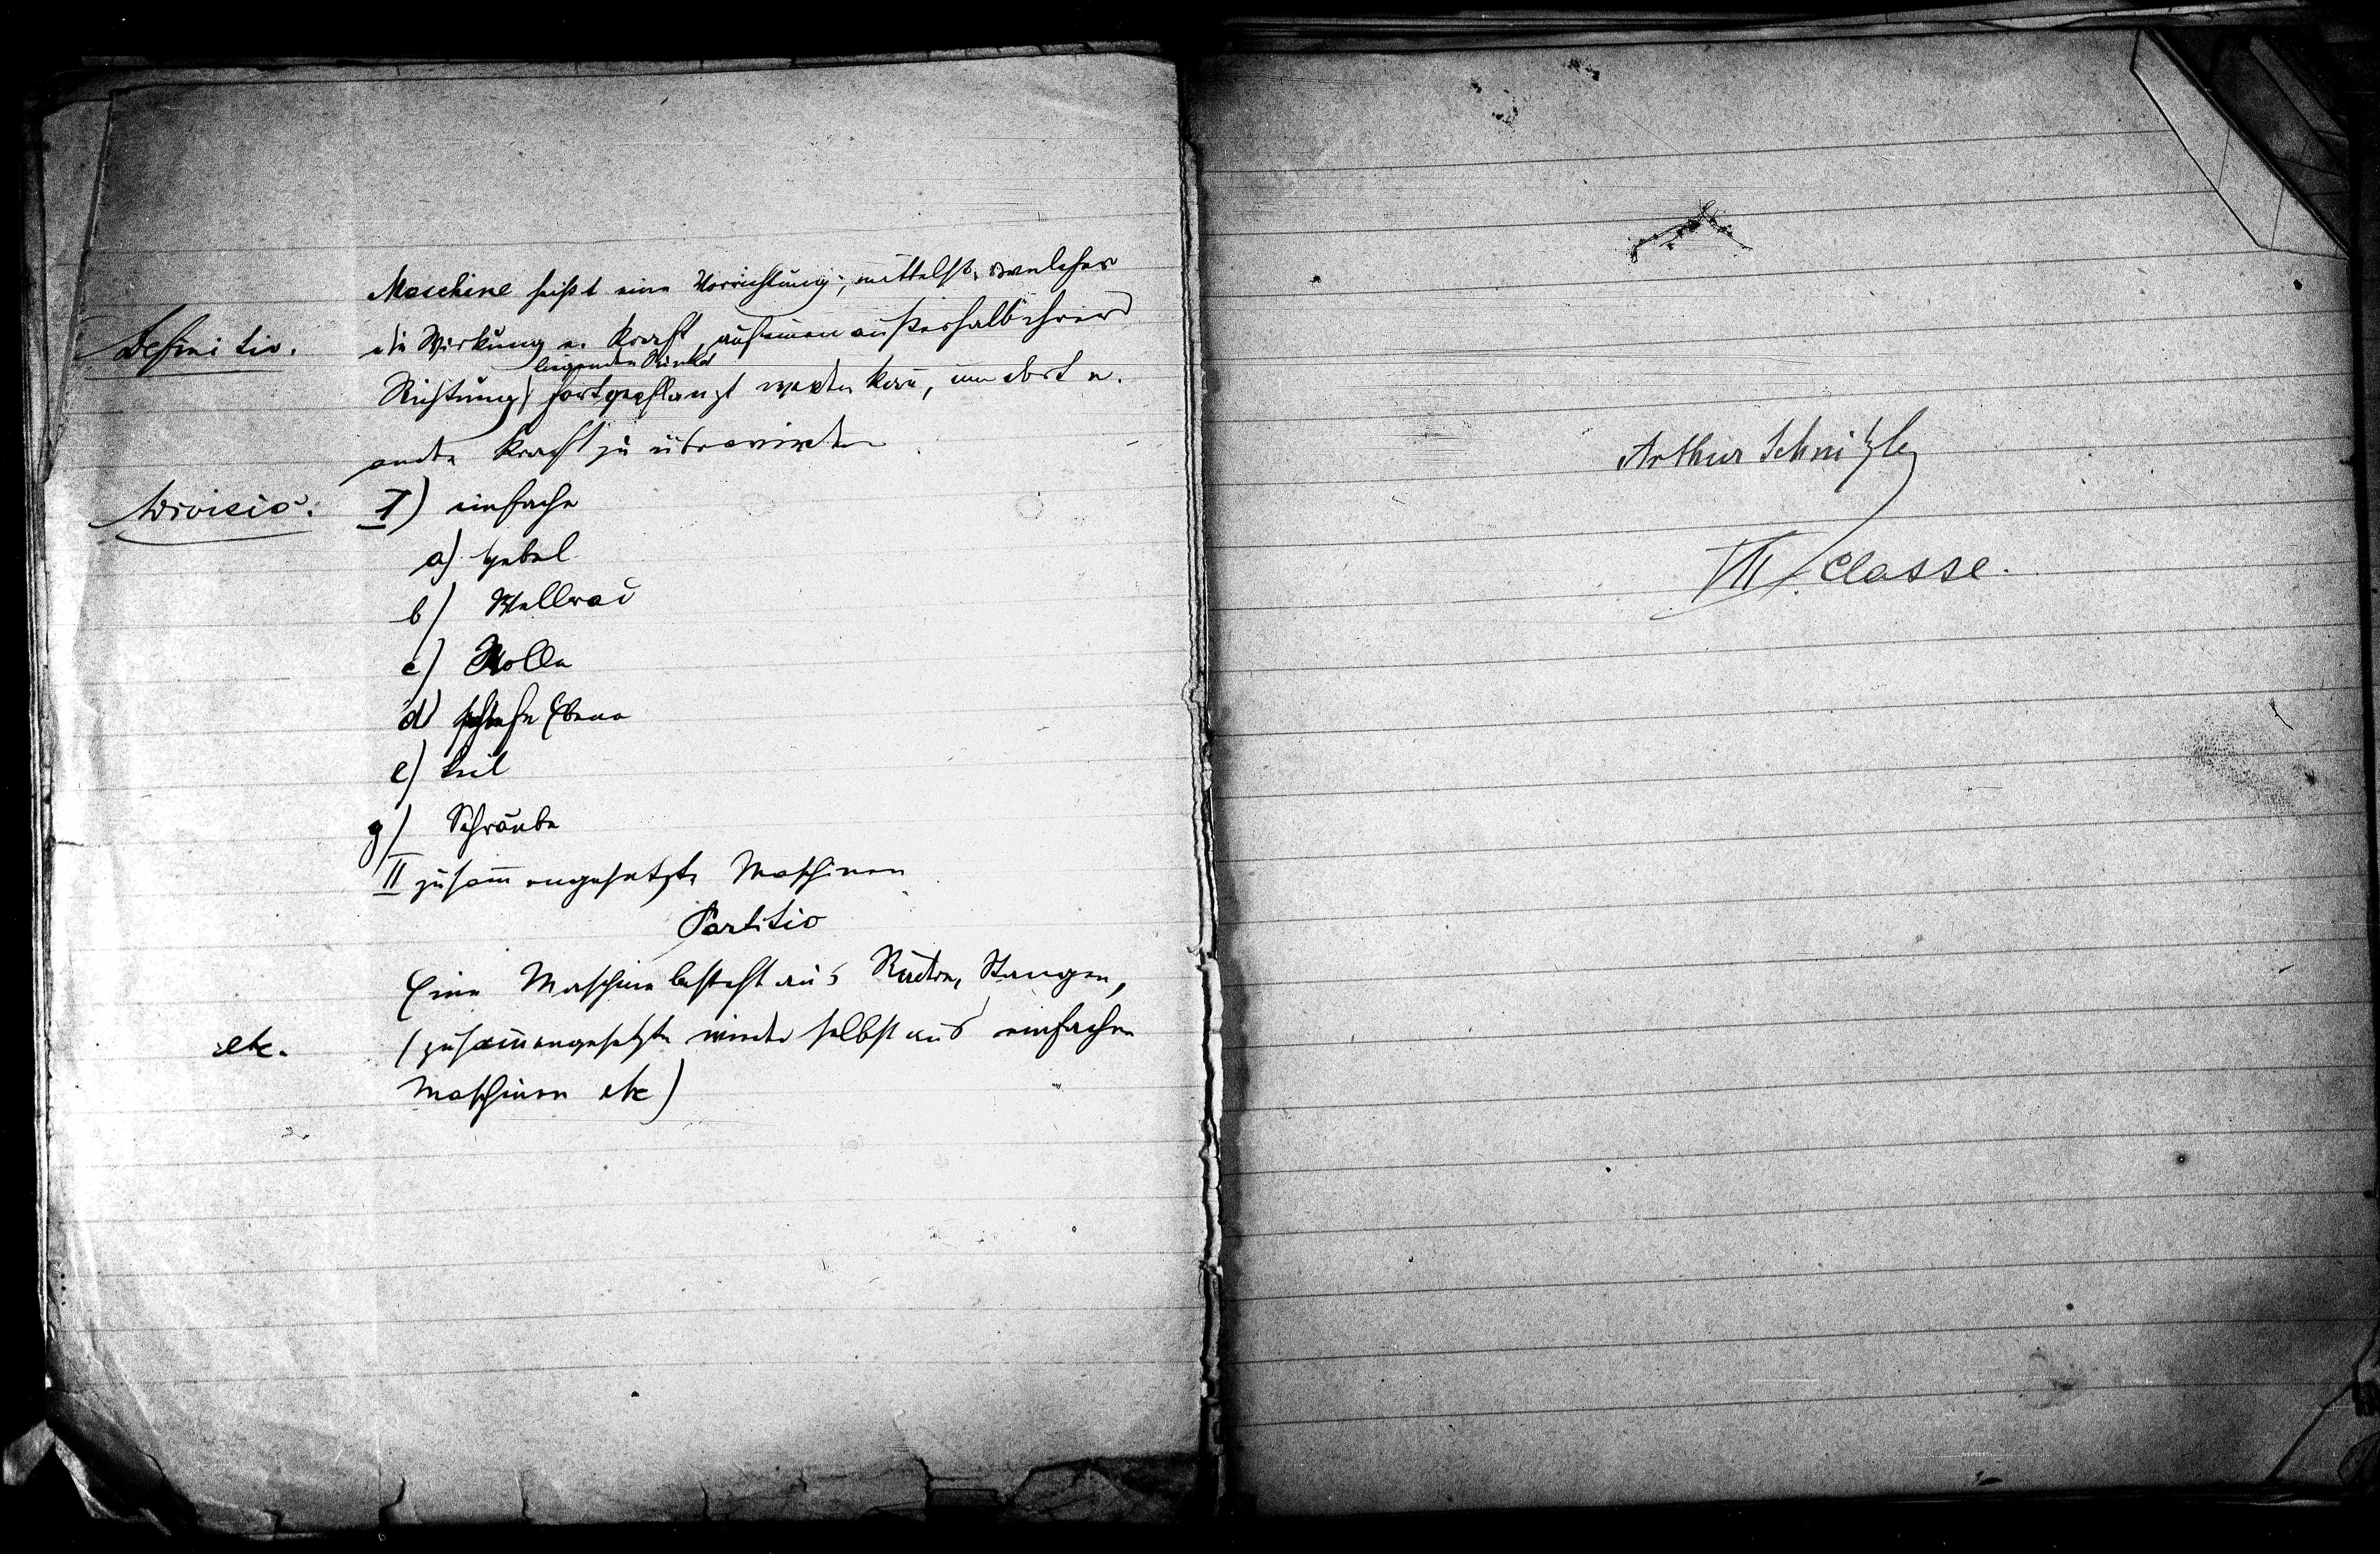 Maschine heißt eine Vorrichtung, mittelst welcher
Definitio. die Wirkung e. Kraft, auf einen außerhalb ihrer
liegenden Punkt
Richtung fortgepflanzt werden kann, um dort e.
andre Kraft zu überwinden
Divisio. I) einfache
a) Hebel
b) Wellrad
c) Rolle
d) schiefe Ebene
e) Keil
g) Schraube
II zusammengesetzte Maschinen
Partitio
Eine Maschine besteht aus Rädern, Stangen,
etc. (zusammengesetzte wieder selbst aus einfachen
Maschinen etc)
Arthur Schnitzler
VII. Classe.